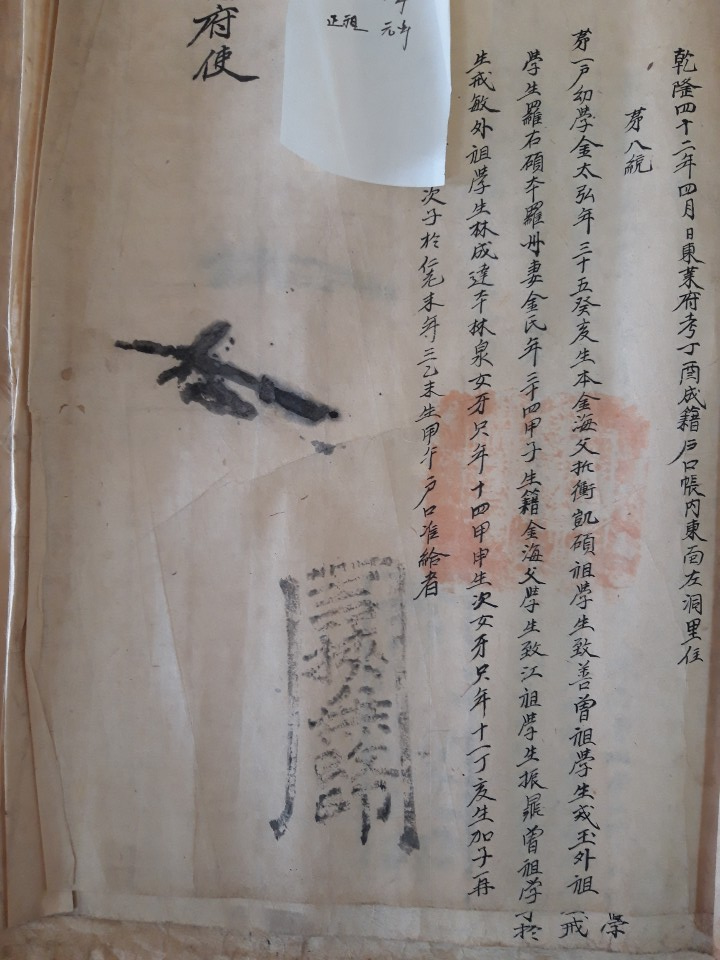 乾隆四十二年四月日東萊府考丁酉成籍戶口帳內東面左洞里住
第八統
第一戶幼學金太弘年三十五癸亥生本金海父折衝凱碩祖學生致善曾祖學生戎玉外祖學
學生羅石碩本羅州妻金氏年三十四甲子生籍金海父學生致江祖學生振 曾祖學一戒
生戒敏外祖學生林成達本林泉女牙只年十四甲申生次女牙只年十一丁亥生加子再
次子於仁老未年三乙未生甲午戶口准給者
府使
正祖 元年